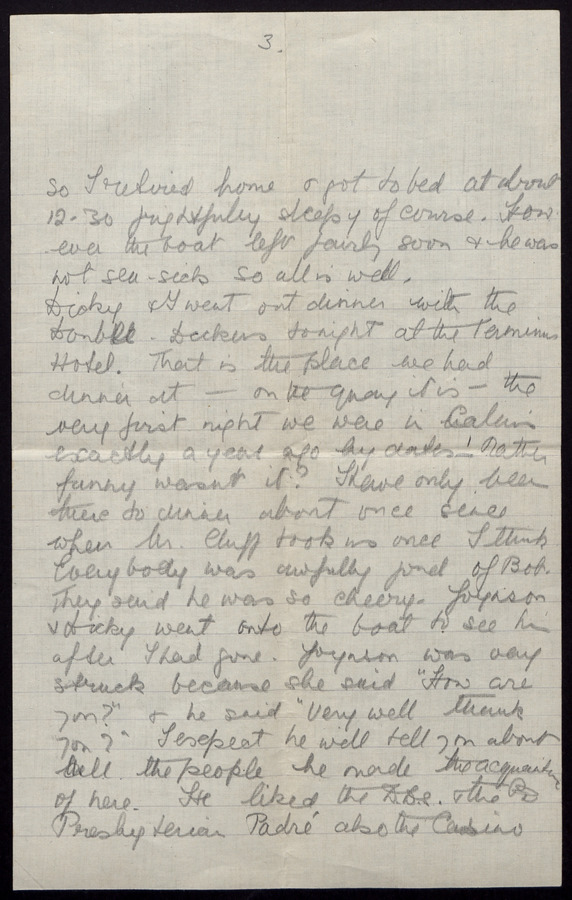 3.
So I retired home & got to bed at about
12.30 frightfully sleepy of course. How-
ever the boat left fairly soon & he was
not sea-sick so all is well.
Dicky & I went out dinner with the
Deckers tonight at the Terminus
Hotel. That is the place we had
dinner at — on the quay it is — the
very first night we were in Calais
exactly a year ago by dates! Rather
funny wasn't it? I have only been
there to dinner about once since
when Mr. Cluff took us once I think
Everybody was awfully fond of Bob.
They said he was so cheery. Joynson
& Dicky went onto the boat to see him
after I had gone. Joynson was very
struck because she said "How are
you?" & he said "Very well thank
you?" I expect he will tell you about
all the people he made the acquaintance
of here. He liked the & the
Presbyterian Padré also the Casino